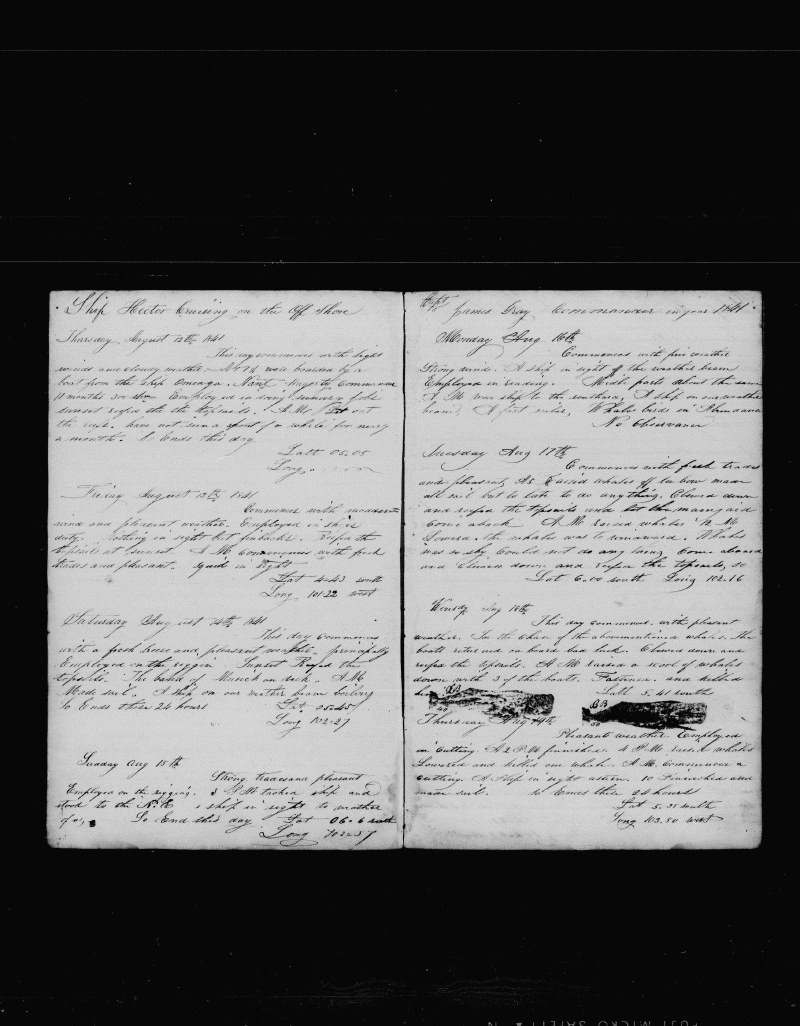 Ship Hector Cruising on the Off Shore
Thursday August 12th 1841
This day commences with light
winds and cloudy weather. At 7 P M was boarded by a
boat from the ship Omega. Nant
11 months 300 Employed in
sunset reefed the topsails. A.M. out
the reefs. have not seen a spout of a whale for nearly
a month. So Ends this day
Latt 05.05
Long
Friday August 13th 1841
Commences with moderate
wind and pleasant weather. Employed in ships
duty. Nothing in sight but finbacks. reefed the
topsails at sunset. A.M. Commences with fresh
trades and pleasant. in sight
Lat 4-43 south
Long 101-22 west
Saturday August 14th 1841
This day commences
with a fresh breese and pleasant weather. principally
Employed on the riggin Sunset Reefed the
topsails. The band of Musick on deck. A.M.
Made sail. A ship on our weather beam boiling
So Ends these 24 hours Lat. 05-45
Long 102-27
Sunday Aug 15th
Strong trades and pleasant
Employed on the rigging. 3 P M tacked ship and
stood to the N.E. a ship in sight to
So End this day Lat 06-6 south
Long 102-57
James Gray Commander in year 1841
Monday Aug 16th
Commences with fine weather
Strong wind. A ship in sight of the weather beam
Employed in reading. Middle parts about the same
A M was ship to the southard, A ship on our weather
beam. Whales birds in Abundance
No Observance
Tuesday Aug 17th
Commences with fresh trades
and pleasant, At Raised whales off lee bow made
all sail but to late to do anything. Clewed down
and reefed the topsails and the mainyard
Come aback A M raised whales N M
Lowered. the whales was to windward. Whales
was so shy Could not do any thing Come aboard
and Clewed down and reefed the topsails, so
Lat 6.00 south Long 102-16
Wensdy Aug 18th
This day commences. with pleasant
weather. In the chase of the abovementioned whales. The
boats returned on board bad luck. Clewed down and
reefed the topsails. A M raised a scool of whales
down with 3 of the boats. Fastened. and killed
Latt 5.41 south
BB
40
BB
50
Thursday Aug 19th
Pleasant weather. Employed
in Cutting. At 2 P. M finnished. 4 P M. raised whales
Lowered and killed one whale. A. M. Commenced a
cutting. A ship in sight astern. 10 Finnished and
made sail. So Ends these 24 hours
Lat 5.35 south
Long 103.50 west